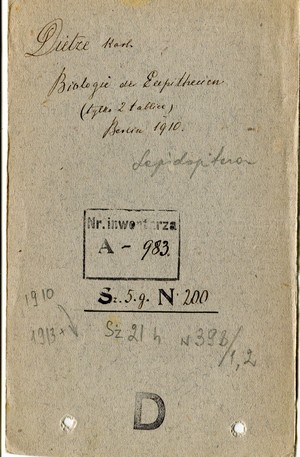 Dietze Karl
Biologie der Eupithecien
(tylko 2 tablice)
Berlin 1910.
Lepidoptera
Nr. inwentarza
A - 983.
Sz. 5. g. N 200
1910
1913
Sz 21 h N 398/1,2
D